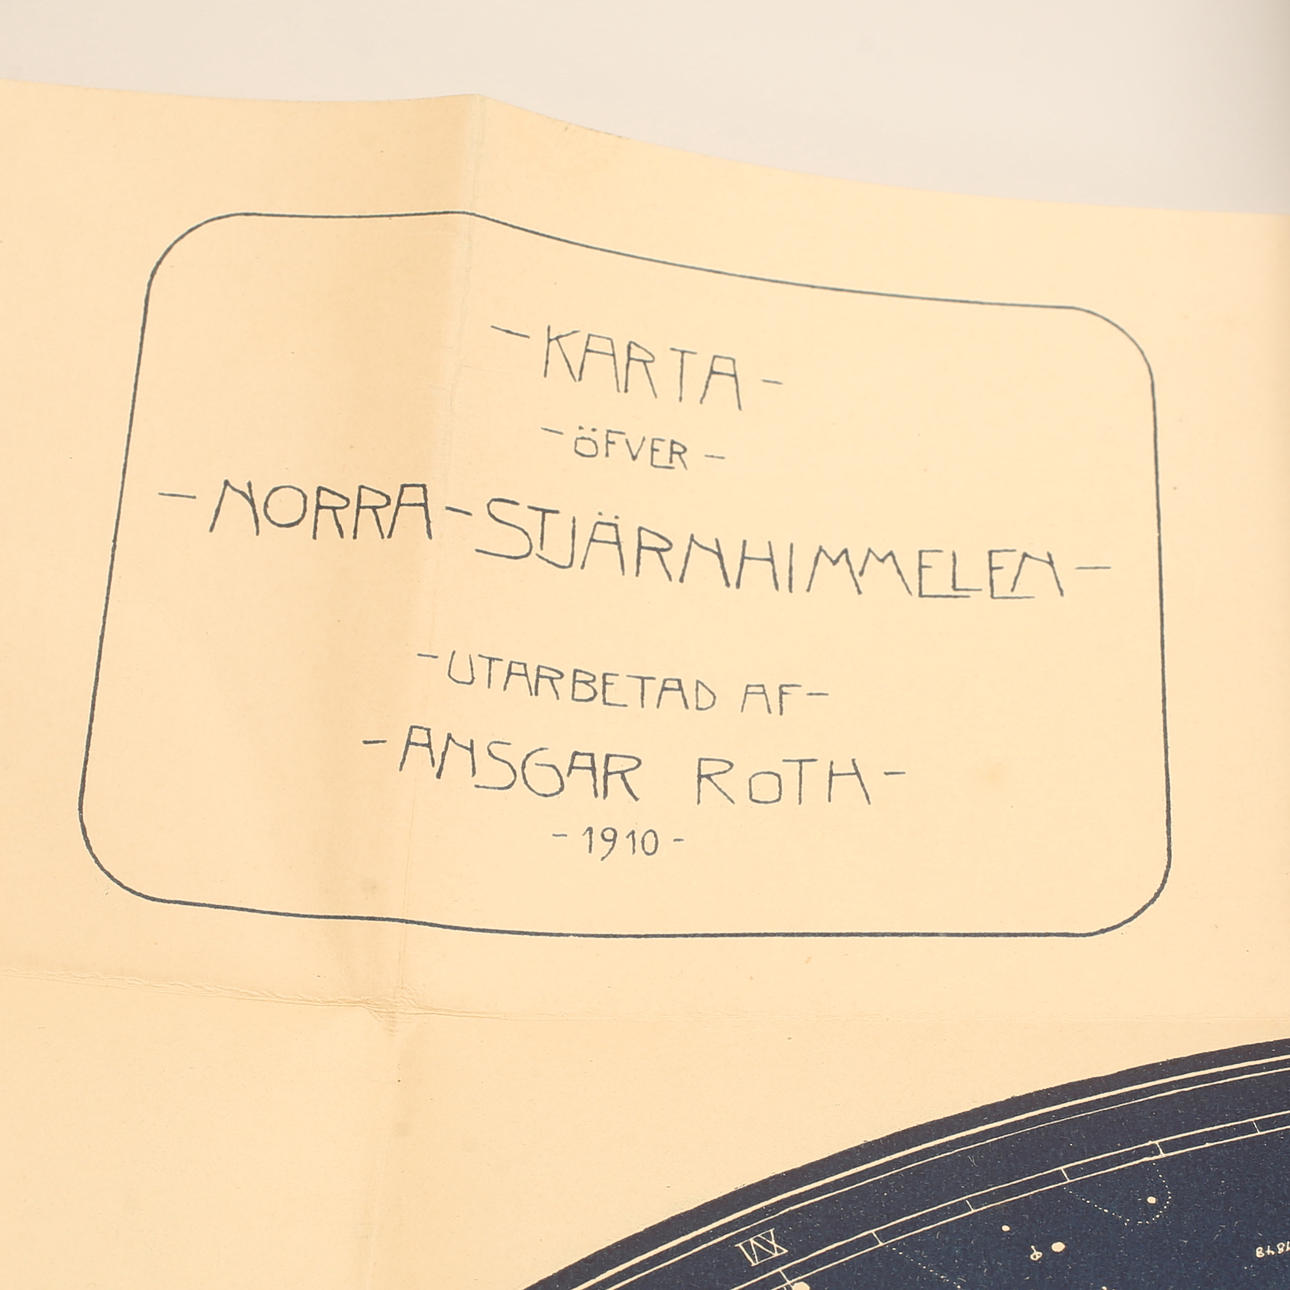 -KARTA-
-ÖFVER-
-NORRA-STJÄRNHIMMELEN-
-UTARBETAD AF-
-ANSGAR ROTH-
-1910-